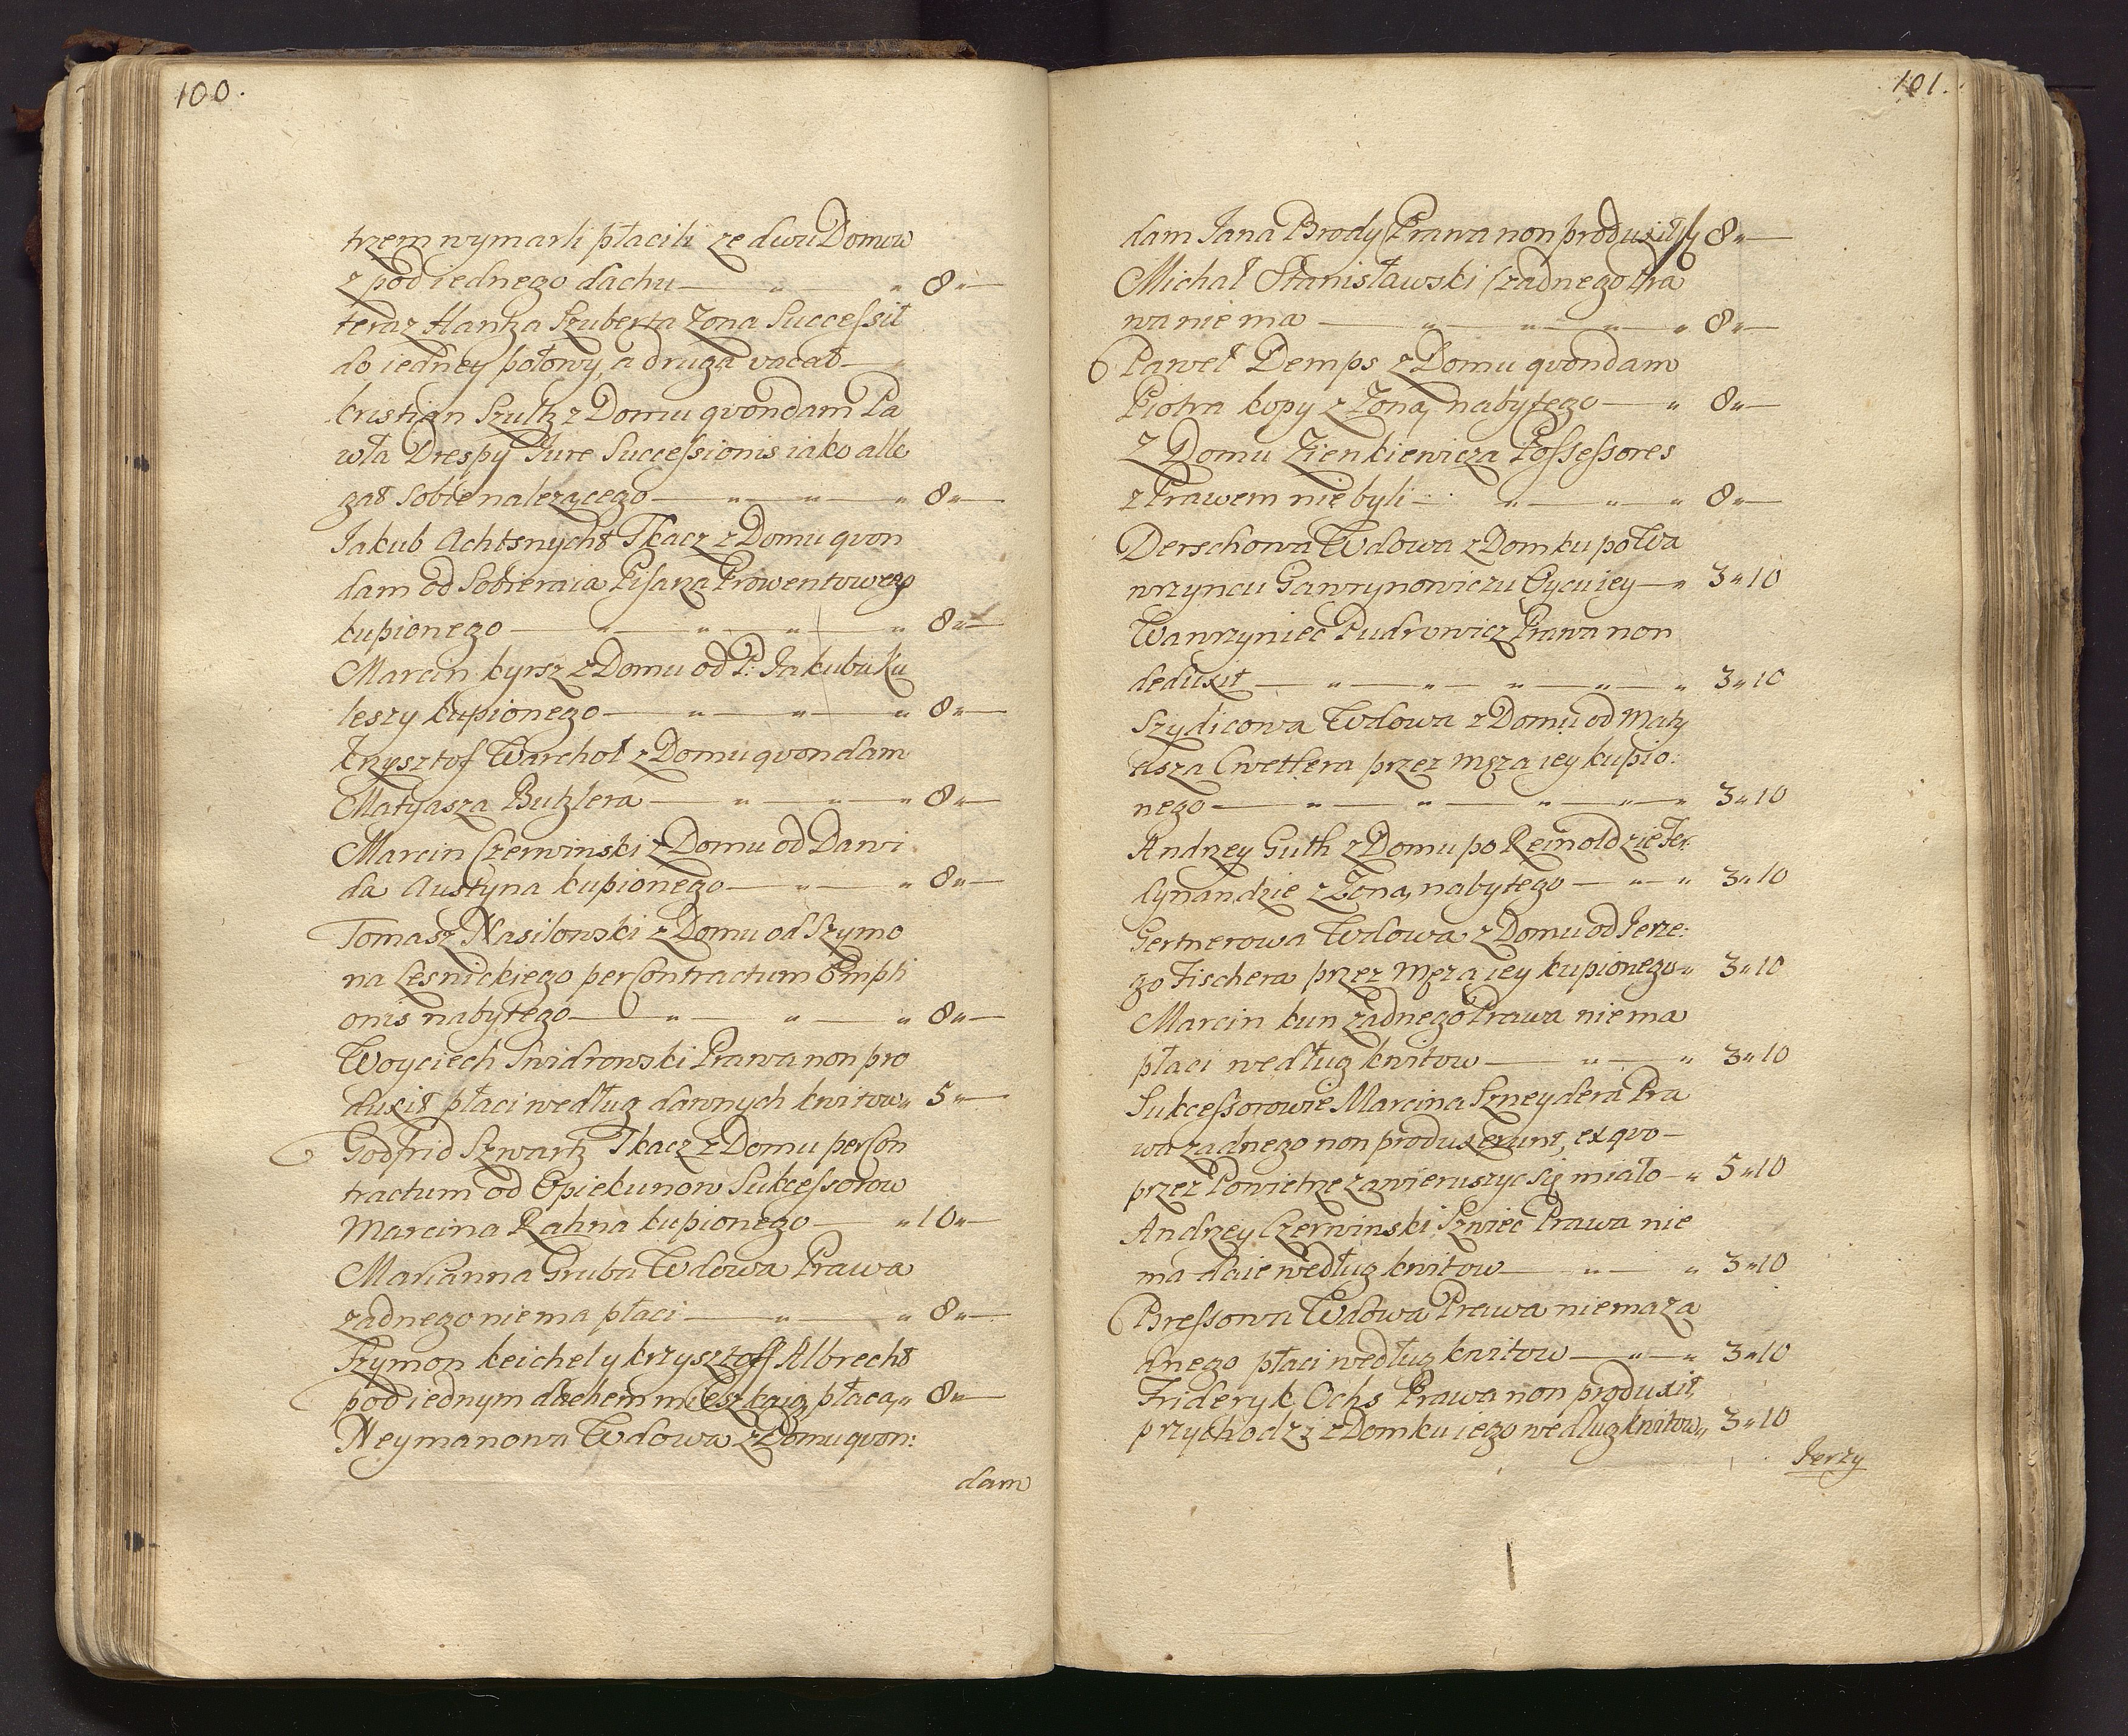 100.
trzem wymarli płacili ze dwu Domow
z pod iednego dachu — „ — „ 8 „ —
teraz Hantza Szuberta Zona Successit
do iedney połowy, a druga vacat — „
Kristian Szultz z Domu qvondam Pa
wła Drespy Jure Successionis iako alle
gat sobie nalezącego — „ — „ — „ 8 „ —
Jakub Achtsnycht Tkacz z Domu qvon
dam od Sobieraia Pisarza Prowentowego
kupionego — „ — „ — „ — „ 8 „ —
Marcin Kyrsz z Domu od P: Jakuba Ku
leszy kupionego — „ — „ — „ 8 „ —
Krzysztof Warchoł z Domu qvondam
Matyasza Butzlera — „ — „ — „ 8 „ —
Marcin Czerwinski z Domu od Dawi
da Austyna kupionego — „ — „ 8 „ —
Tomasz Nasilowski z Domu od Szymo
na Lesnickiego per Contractum Empti
onis nabytego — „ — „ — „ 8 „ —
Woyciech Swidrowski Prawa non pro
duxit płaci według dawnych kwitow „ 5 „ —
Godfrid Szwartz Tkacz z Domu per Con
tractum od Opiekunow Sukcessorow
Marcina Rahna kupionego — „ 10 „ —
Marianna Gruba Wdowa Prawa
zadnego niema płaci — „ — „ 8 „ —
Szymon Keichel y Krzysztoff Albrecht
pod iednym dachem mieszkaią, płacą „ 8 „ —
Neymanowa Wdowa z Domu qvon:
dam
101.
dam Jana Brody Prawa non produxit // 8 „ —
Michał Stanisławski zadnego Pra
wa nie ma — „ — „ — „ — „ 8 „ —
Paweł Demps z Domu qvondam
Piotra Kopy z Zoną nabytego — „ 8 „ —
Z Domu Zienkiewicza Possessores
z Prawem nie byli — „ — „ — „ 8 „ —
Derschowa Wdowa z Domku po Wa
wrzyncu Gawrynowiczu Oycu iey — „ 3 „ 10
Wawrzyniec Pudrowicz Prawa non
deduxit — „ — „ — „ — „ — „ 3 „ 10
Szydicowa Wdowa z Domu od Maty
asza Cwetlera przez Męza iey kupio:
nego — „ — „ — „ — „ — „ 3 „ 10
Andrzey Guth z Domu po Reinoldzie Fer:
dynandzie z Zoną nabytego — „ — „ 3 „ 10
Gertnerowa Wdowa z Domu od Jerze:
go Fischera przez Męza iey kupionego „ 3 „ 10
Marcin Kun zadnego Prawa niema
płaci według kwitow — „ — „ 3 „ 10
Sukcessorowie Marcina Szneydera Pra
wa zadnego non produxerunt, ex quo —
przez Powietrze zawieruszyc się miało — „ 5 „ 10
Andrzey Czerwinski Szwiec Prawa nie
ma daie według kwitow — „ — „ 3 „ 10
Bressowa Wdowa Prawa niema za
dnego płaci według kwitow — „ — „ 3 „ 10
Frideryk Ochs Prawa non produxit,
przychodzi z Domku iego według kwitow „ 3 „ 10
Jerzy